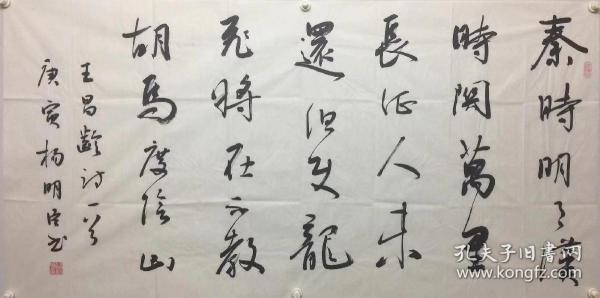 秦時明月漢
時関萬里
長征人未
還但使龍
飛將在不教
胡馬度陰山
王昌齡詩一首
庚寅楊明臣书
孔夫子旧書网
www.kongfz.com